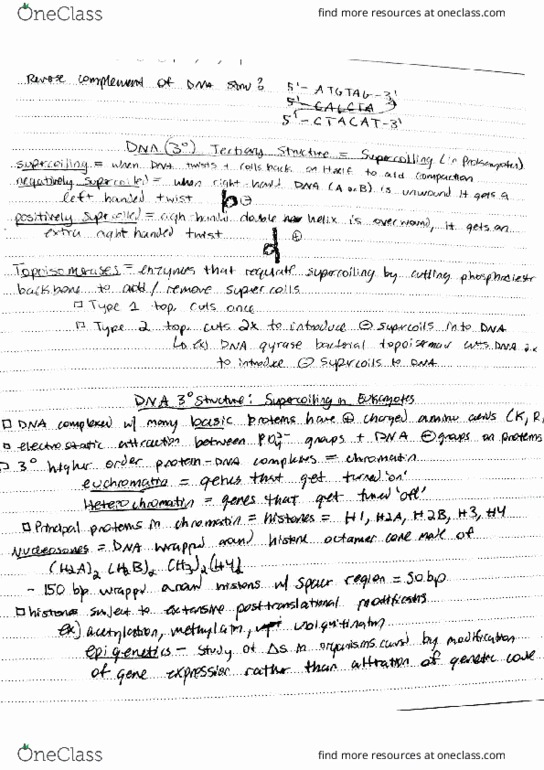 OneClass
find more resources at oneclass.com
Reverse complement of DNA strw? 5'- ATGTAG-3'
5'- CATCTA
5'- CTACAT-3'
DNA (3°) Tertiary Structure = Supercoiling (in Prokaryotes)
supercoiling = when DNA twists + coils back on itself to aid compaction
negatively supercoiled = when right-hand DNA (A or B) is unwound it gets a
left handed twist ⊖
positively supercoiled = righ-handed double helix is overwound, it gets an
extra right handed twist ⊕
Topoisomerases = enzymes that regulate supercoiling by cutting phosphodiestr
backbone to add/remove supercoils
Type 1 top. cuts once
Type 2 top. cuts 2x to introduce ⊖ supercoils into DNA
ex) DNA gyrase bacterial topoisomer cuts DNA 2x
to introduce ⊖ supercoils to DNA
DNA 3° Structure: Supercoiling in Eukaryotes
DNA complexed w/ many basic proteins have ⊕ charged amino acids (K, R,
electrostatic attraction between PO4³⁻ groups + DNA ⊖ groups on proteins
3° higher order protein-DNA complexes = chromatin
euchromatin = genes that get turned 'on'
Heterochromatin = genes that get turned 'off'
Principal proteins in chromatin = histones = H1, H2A, H2B, H3, H4
Nucleosomes = DNA wrapped around histone octamer core made of
(H2A)2 (H2B)2 (H3)2 (H4)
- 150 bp wrapped around histons w/ spacer region = 50 bp
histones subject to extensive posttranslational modificatns
ex) acetylation, methylatn, ubiquitinatn
epigenetics - study of Δs in organisms caused by modification
of gene expression rather than altration of genetic code
OneClass
find more resources at oneclass.com